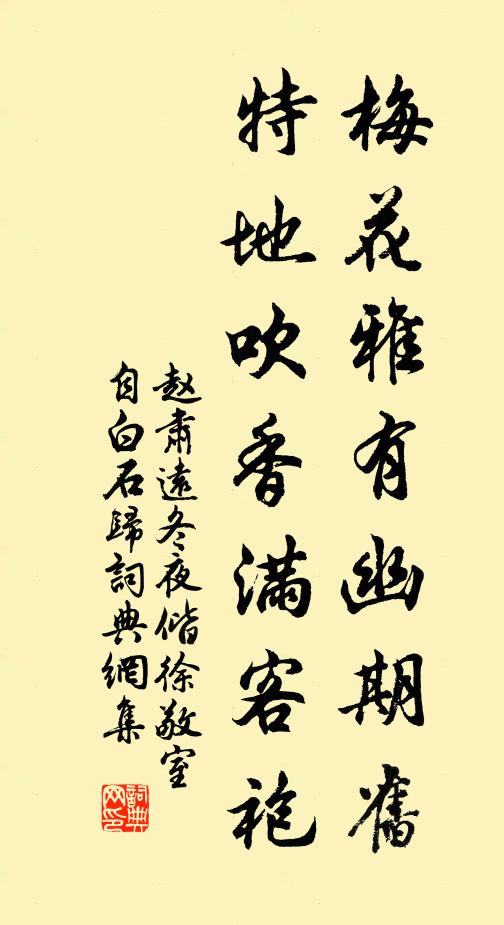 梅花雅有幽期舊
特地吹香滿客袍
赵肅遠冬夜偕徐敬室
自白石歸詞典網集
詞典
网印